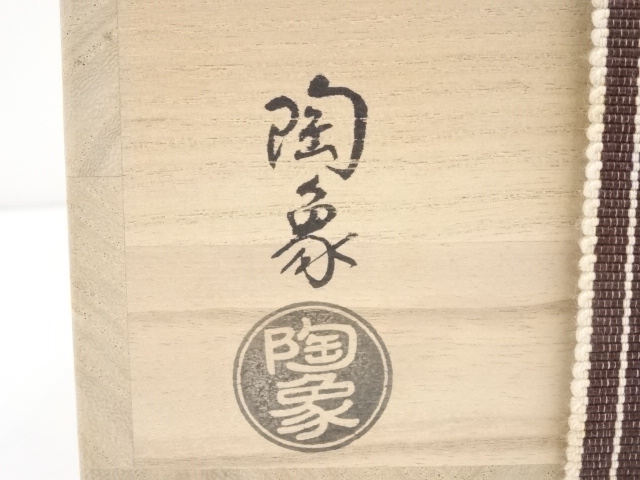 陶象
陶象